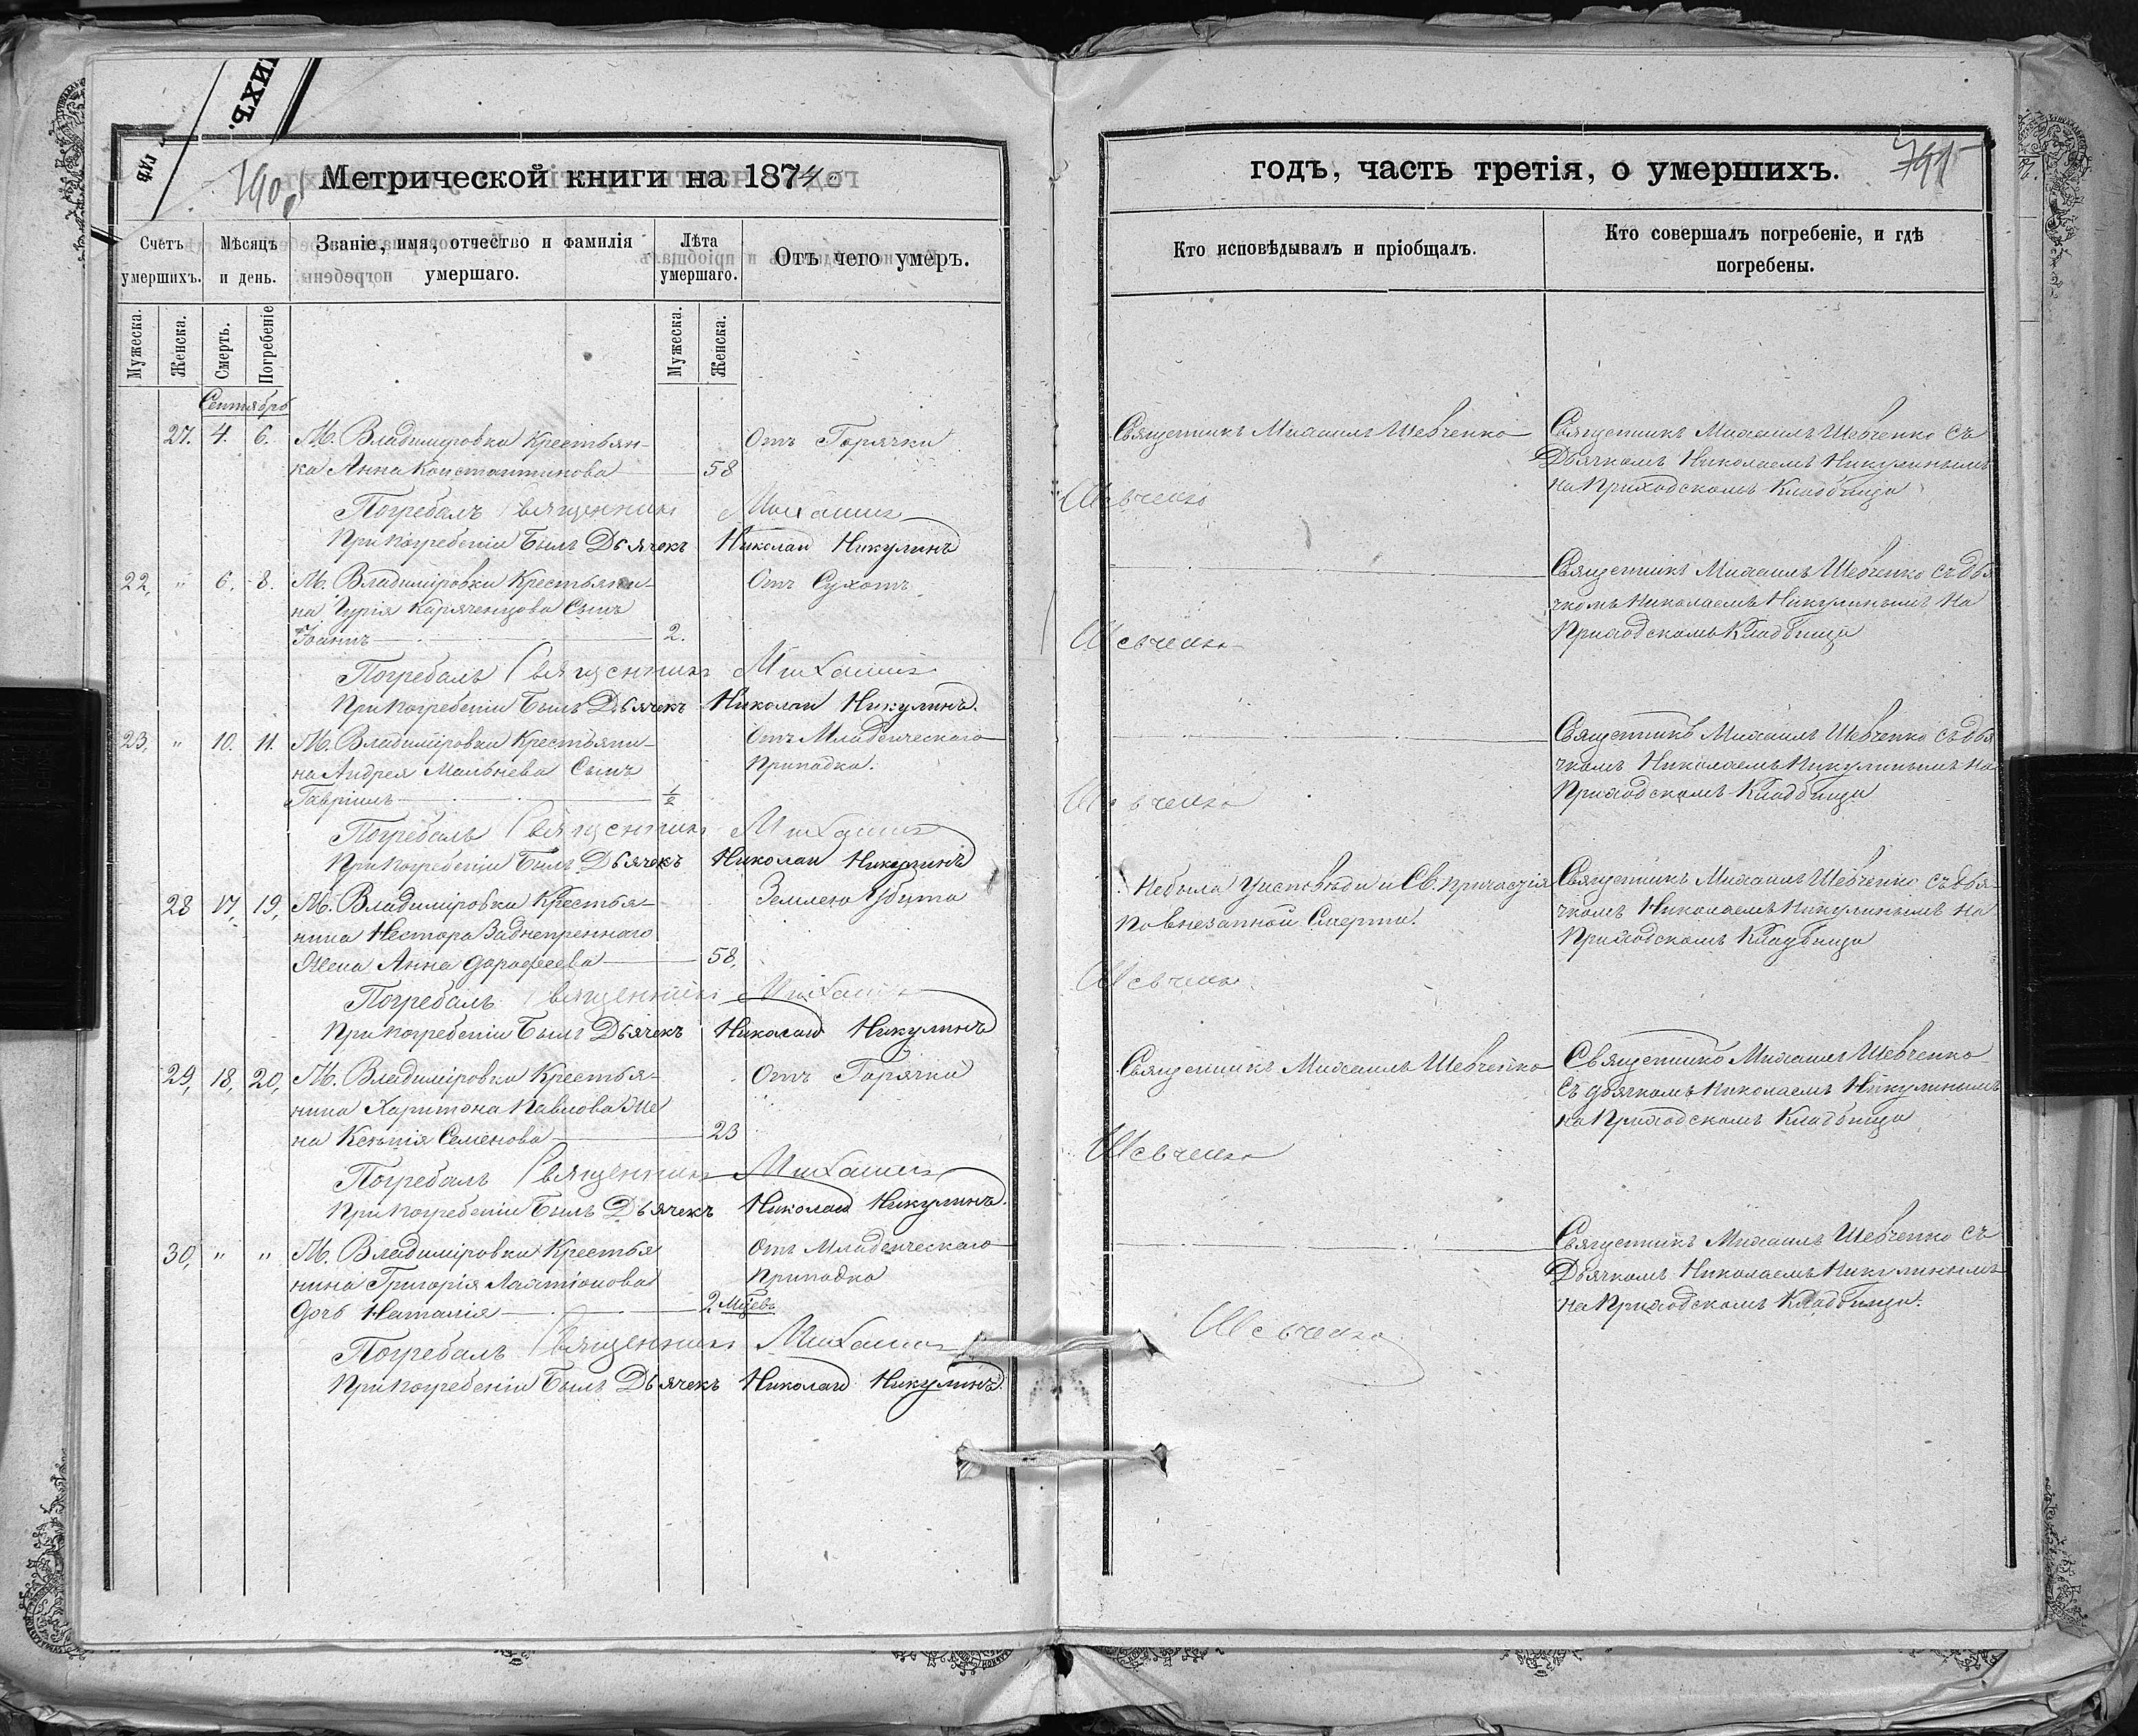 ИХЪ.
гдѣ
790
Метрической книги на 1874
Счетъ умершихъ.
Мѣсяцъ и день.
Званіе, имя, отчество и фамилія умершаго.
Лѣта умершаго.
Отъ чего умеръ.
Мужеска.
Женска.
Смерть.
Погребеніе
Мужеска.
Женска.
Сентябрь
27. 4. 6. М. Владимировки Крестьян- Отъ Горячки
ка Анна Константинова 58
Погребалъ Священникъ Михаилъ
При погребеніи былъ Дьячекъ Николай Никулинъ
22, " 6. 8. М. Владиміровки Крестьяни- Отъ Сухотъ
на Гурія Сынъ
Іоаннъ 2.
Погребалъ Священникъ Михаилъ
При погребеніи былъ Дьячекъ Николай Никулинъ.
23, " 10. 11. М. Владиміровки Крестьяни- Отъ Младенческаго
на Андрея Мальнева Сынъ припадка.
Гавріилъ 1/2
Погребалъ Священникъ Михаилъ
При погребеніи былъ Дьячекъ Николай Никулинъ
28 17, 19, М. Владиміровки Крестья- Землею Убита
нина Нестора Заднепренного
Жена Анна Дорофеева 58,
Погребалъ Священникъ Михаилъ
При погребеніи былъ Дьячекъ Николай Никулинъ
29, 18, 20, М. Владиміровки Крестья- Отъ Горячки
нина Харитона Павлова Же
на Ксенія Семенова 23
Погребалъ Священникъ Михаилъ
При погребеніи былъ Дьячекъ Николай Никулинъ.
30, " " М. Владиміровки Крестья Отъ Младенческаго
нина Григорія Лактіонова припадка
Дочь Наталія 2 Мцевъ
Погребалъ Священникъ Михаилъ
При погребеніи былъ Дьячекъ Николай Никулинъ.
годъ, часть третія, о умершихъ.
791
Кто исповѣдывалъ и пріобщалъ.
Кто совершалъ погребеніе, и гдѣ погребены.
Священникъ Михаилъ Шевченко Священникъ Михаилъ Шевченко Съ
Дьячкомъ Николаемъ Никулинымъ
на Приходскомъ Кладбищи
Шевченко
Священникъ Михаилъ Шевченко съ дья
чкомъ Николаемъ Никулинымъ на
Приходскомъ Кладбищи
Шевченко
Священникъ Михаилъ Шевченко съ дья
чкомъ Николаемъ Никулинымъ на
Приходскомъ Кладбищи
Шевченко
Небыла Уисповѣди и Св. причастія Священникъ Михаилъ Шевченко съ дья-
по внезапной Смерти. чкомъ Николаемъ Никулинымъ на
Приходскомъ Кладбищи
Шевченко
Священникъ Михаилъ Шевченко Священникъ Михаилъ Шевченко
съ дьячкомъ Николаемъ Никулинымъ
на Приходскомъ Кладбищи
Шевченко
Священникъ Михаилъ Шевченко Съ
Дьячкомъ Николаемъ Никулинымъ
на Приходскомъ Кладбищи.
Шевченко